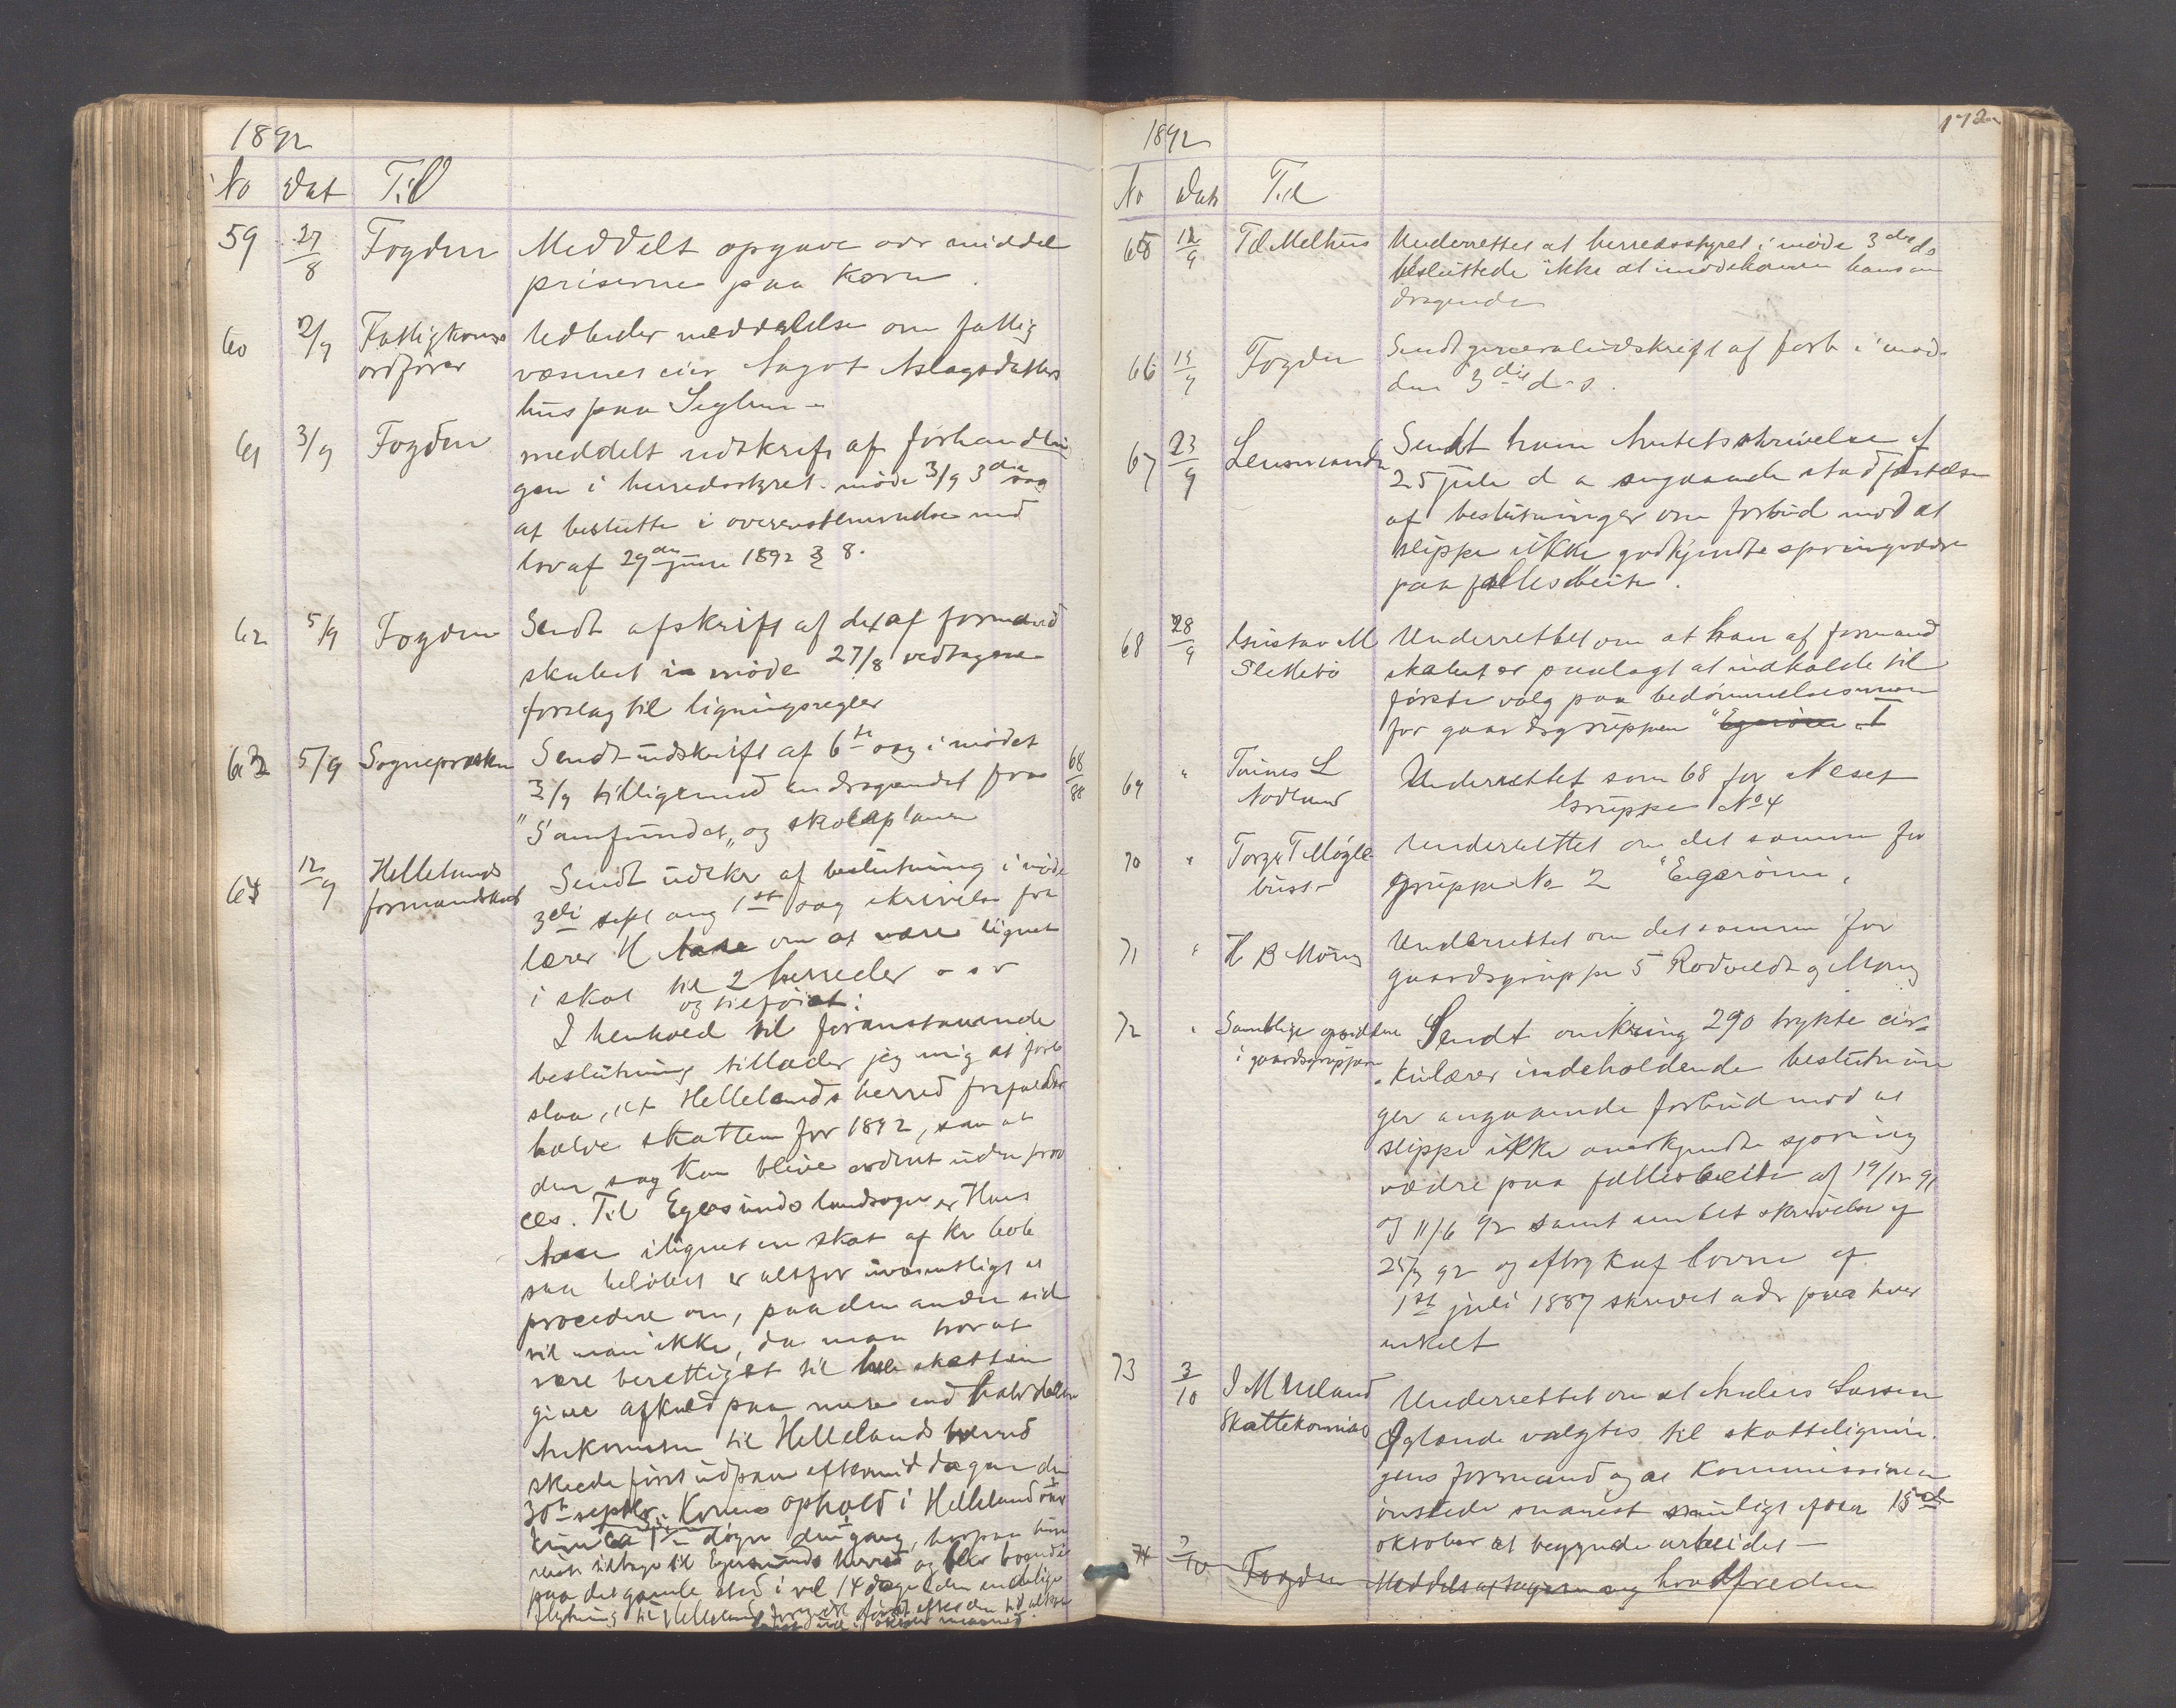 1892
No Dat Til
59 27/8 Fogden Meddelt opgave over middel
priserne paa korn.
60 2/9 Fattigkoms Udbeder meddelelse om fattig
ordfører væsenets eier Aagot Aslagsdatters
hus paa Seglem
61 3/9 Fogden meddelt udskrift af forhandlin
gen i herredsstyret møde 3/9 3die sag
at beslutte i overensstemmelse med
lov af 29de juni 1892 § 8.
62 5/9 Fogden Sendt afskrift af det af formand
skabet i møde 27/8 vedtagne
forslag til ligningsregler
63 5/9 Sognepresten Sendt udskrift af 6te sag i mødet 68/88
3/9 tilligemed andragendet fra
"Samfundet" og skoleplanen
64 12/9 Hellelands Sendt udskr af beslutning i møde
formandskab 3die sept ang 1ste sag skrivelse fra
lærer H Aase om at være lignet
i skat til 2 herreder o s v
og tilføiet:
I henhold til foranstaaende
beslutning tillader jeg mig at fore
slaa, at Hellelands herred frafalder
halve skatten for 1892, saa at
den sag kan blive ordnet uden pro
ces. Til Egersunds landsogn er Hans
Aase ilignet en skat af kr
saa beløbet er altfor uvæsentligt at
procedere om, paa den anden side
vil man ikke, da man tror at
være berettiget til hele skatten
give afkald paa mere end halvdelen
Ankomsten til Hellelands herred
skede først udpaa eftermiddagen den
30te septbr. Konens ophold i Helleland
kun ca 1 døgn den gang, hvorpaa hun
reiste tilbage til Egersunds herred og blev boende
paa det gamle sted i vel 14 dage den endelige
flytning til Helleland foregik først efter den tid
1892 172
No Dat Til
65 12/9 T d Melhus Underrettet at herredsstyret i møde 3die ds
besluttede ikke at imødekomme hans an
dragende
66 15/9 Fogden Sendt generaludskrift af forh i møde
den 3die d.s.
67 23/9 Lensmanden Sendt ham Amtets skrivelse af
25 juli d a angaaende stadfæstelse
af beslutninger om forbud mod at
slippe ikke godkjendte springvædre
paa fællesbeite.
68 28/9 Gustav M Underrettet om at han af formand
Slettebø skabet er paalagt at indkalde til
første valg paa bedømmelsesmæn
for gaardsgruppen "Egerøen" 1
69 " Tønnes L Underrettet som 68 for Neset
Nodland Gruppe No 4
70 " Torger T Møgle Underrettet om det samme for
buss gruppe No 2 "Egerøen"
71 " H B Mong Underrettet om det samme for
gaardsgruppe 5 Rodvelt og Mong
72 " Samtlige opsiddere Sendt omkring 290 trykte cir-
i gaardsgrupperne kulærer indeholdende beslutnin
ger angaaende forbud mod at
slippe ikke anerkjendte spring
vædre paa fællesbeite af 19/12 91
og 11/6 92 samt amtets skrivelse af
25/7 92 og aftryk af loven af
1ste juli 1887 skrevet adr paa hver
enkelt
73 3/10 I M Ueland Underrettet om at Anders Larsen
Skattekommiss Øglænde valgtes til skatteligning.
gens formand og at kommissionen
ønskede snarest muligt efter 15de
oktober at begynde arbeidet
74 7/10 Fogden Meddelt ang hvalfreden